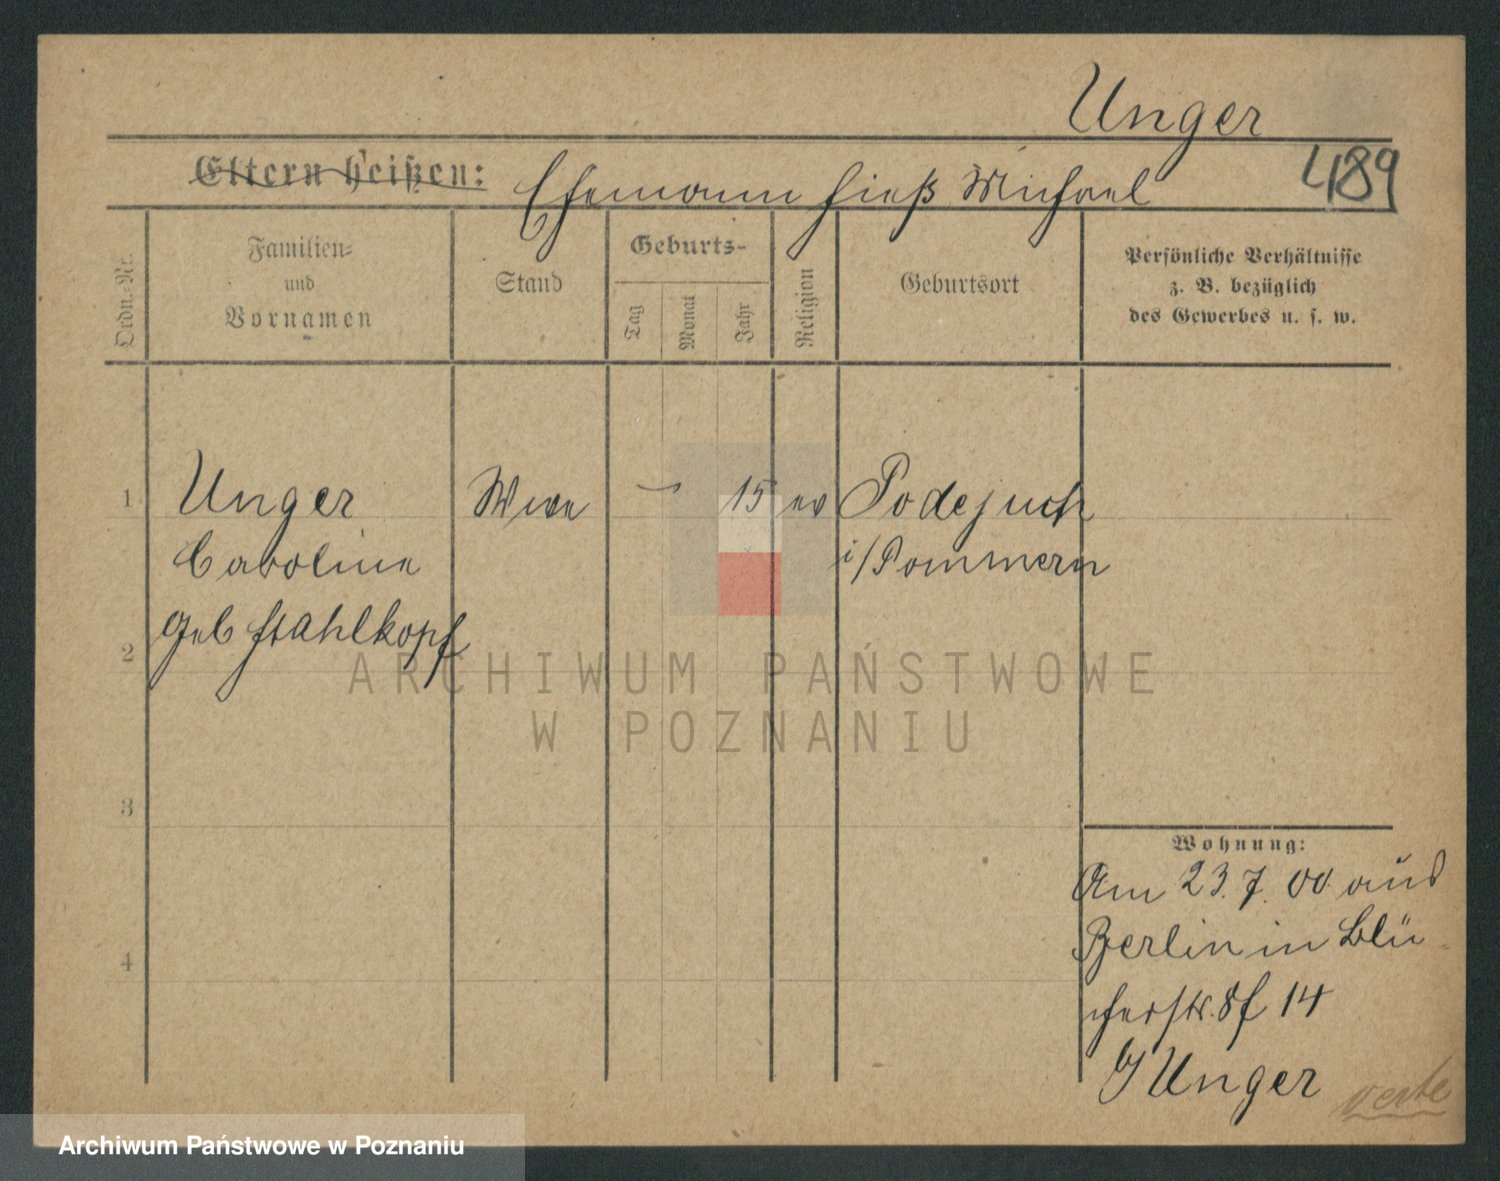 Unger
489
Eltern heißen: Ehemann hieß Michael
Ordn.-Nr.
Familien-
und
Vornamen
Stand
Geburts-
Tag
Monat
Jahr
Religion
Geburtsort
Persönliche Verhältnisse
z. B. bezüglich
des Gewerbes u. s. w.
1 Unger Wwe — 15 ev Podejuch
Caroline i/Pommern
geb Stahlkopf
2
3
4
ARCHIWUM PAŃSTWOWE
W POZNANIU
Wohnung:
Am 23.7.00 aus
Berlin in Blü-
cherstr. 8f 14
b/ Unger
verte
Archiwum Państwowe w Poznaniu